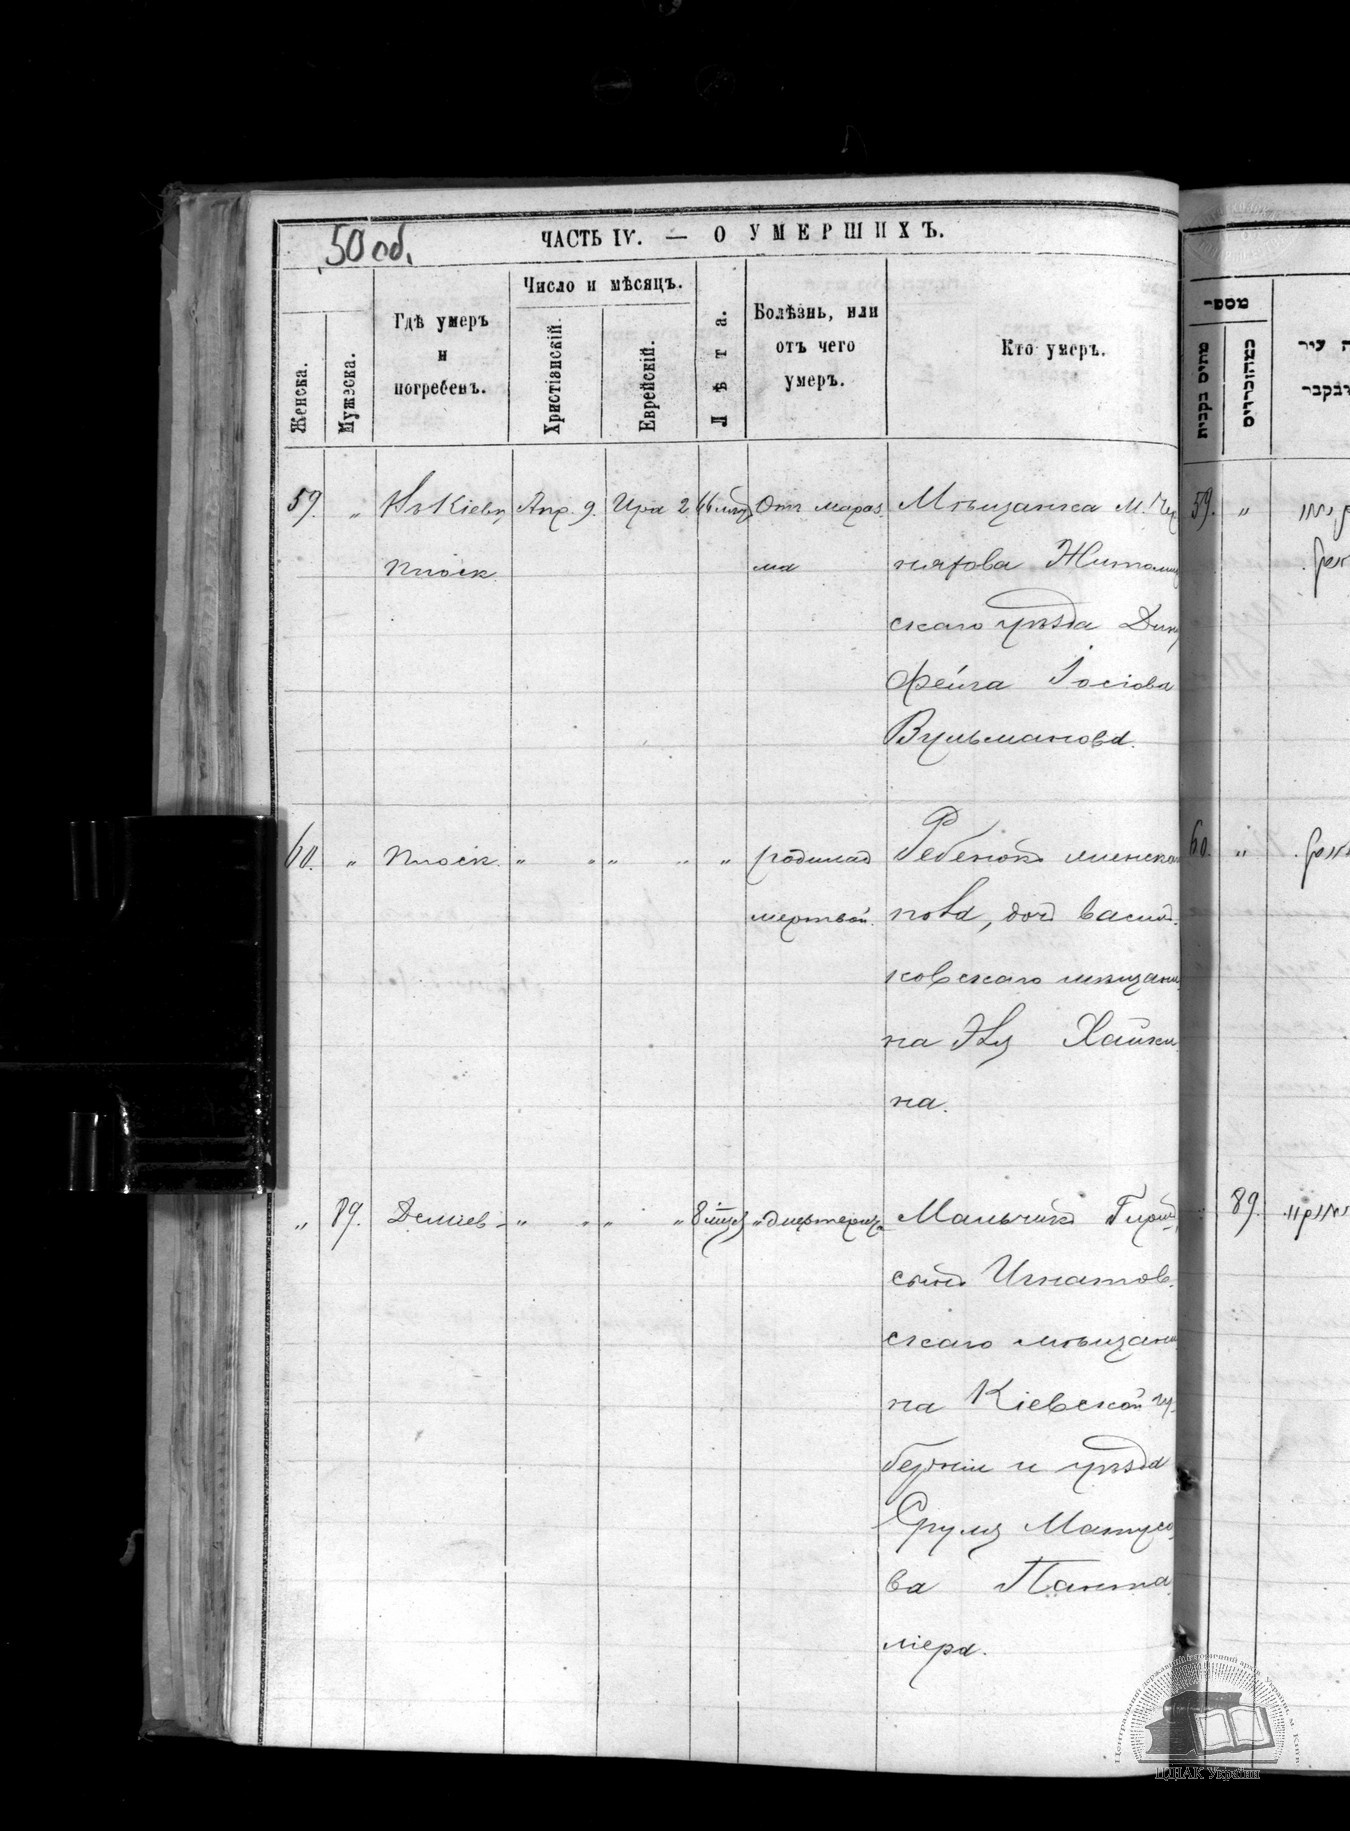 50 об.
ЧАСТЬ IV. — О УМЕРШИХЪ.
Женска.
Мужеска.
Гдѣ умеръ
и
погребенъ.
Число и мѣсяцъ.
Христіанскій.
Еврейскій.
Лѣта.
Болѣзнь, или
отъ чего
умеръ.
Кто умеръ.
מספר
59. „ Въ Кіевѣ Апр. 9. Ира 2. 66 Отъ мараз
Плоск. ма
Мѣщанка М. Чер
няхова Житомир
скаго уѣзда
Фейга Іосіова
Вульманова.
59. „
60. „ Плоск. „ „ „ „ „ родилась
мертвой.
Ребенокъ женскаго
пола, дочь Василь
ковскаго мѣщани
на Хайки
на.
60. „
„ 89. Деміев- „ „ „ „ 8 мѣсяц „ дифтерита
Мальчикъ Гершъ
сынъ Игнатов
скаго мѣщани
на Кіевской гу
берніи и уѣзда
Сруля Матусо
ва Панта
ліера.
89.
ЦДІАК України